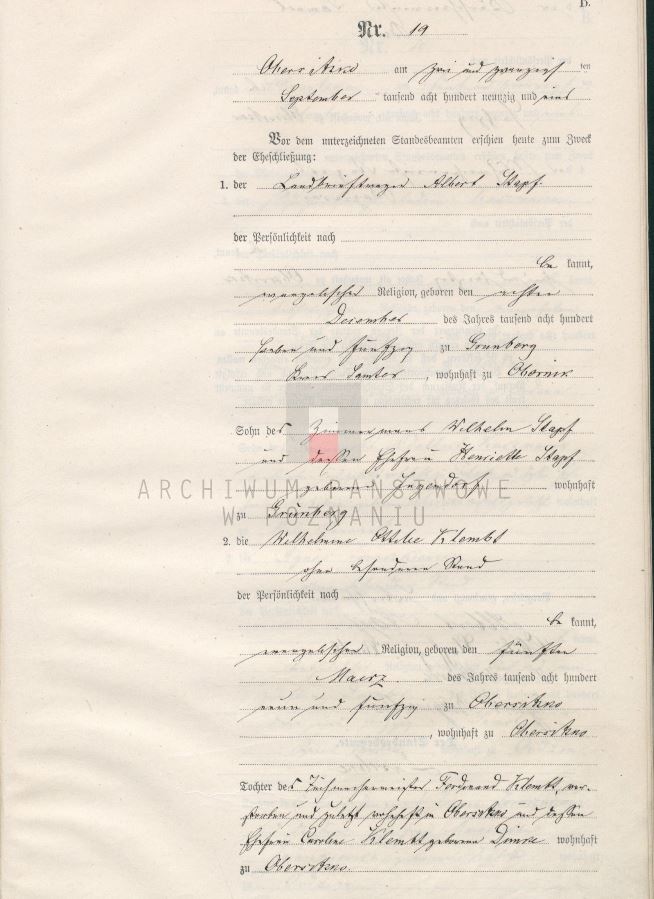 B.
Nr. 19
Obersitzko am zwei und zwanzigsten
September tausend acht hundert neunzig und eins
Vor dem unterzeichneten Standesbeamten erschien heute zum Zweck
der Eheschließung:
1. der Landbriefträger Albert Stapf
der Persönlichkeit nach
be kannt,
evangelischer Religion, geboren den achten
Dezember des Jahres tausend acht hundert
sieben und fünfzig zu Grünberg
Kreis Samter, wohnhaft zu Obornik
Sohn des Zimmermanns Wilhelm Stapf
und dessen Ehefrau Henriette Stapf
geborenen wohnhaft
zu Grünberg
ARCHIWUM PAŃSTWOWE
W POZNANIU
2. die Wilhelmine Ottilie Klembt
ohne besonderen Stand
der Persönlichkeit nach
be kannt,
evangelischer Religion, geboren den fünften
Maerz des Jahres tausend acht hundert
neun und fünfzig zu Obersitzko
, wohnhaft zu Obersitzko
Tochter des Tuchmachermeister Ferdinand Klembt, ver-
storben und zuletzt wohnhaft in Obersitzko und dessen
Ehefrau Caroline Klembt geborene wohnhaft
zu Obersitzko.